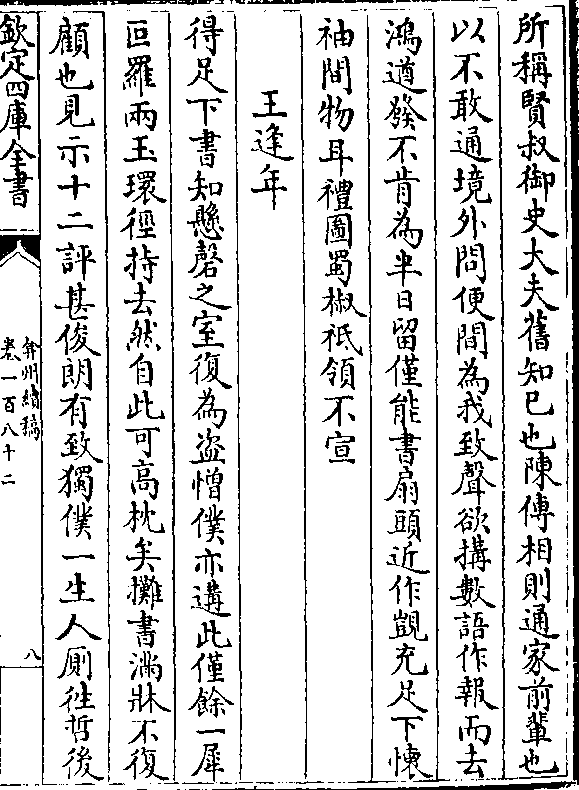 所稱賢叔御史大夫舊知已也陳傅相則通家前輩也
以不敢通境外問便間為我致聲欲搆數語作報而去
鴻遒發不肯為半日留僅能書扇頭近作覬充足下懐
袖間物耳禮圖蜀椒祗領不宣
王逢年
得足下書知懸磬之室復為盗憎僕亦遘此僅餘一犀
叵羅兩玉環徑持去然自此可高枕矣攤書滿牀不復
顧也見示十二評甚俊朗有致獨僕一生人厠徃哲後
欽定四庫全書
弇州續稿
卷一百八十二
八